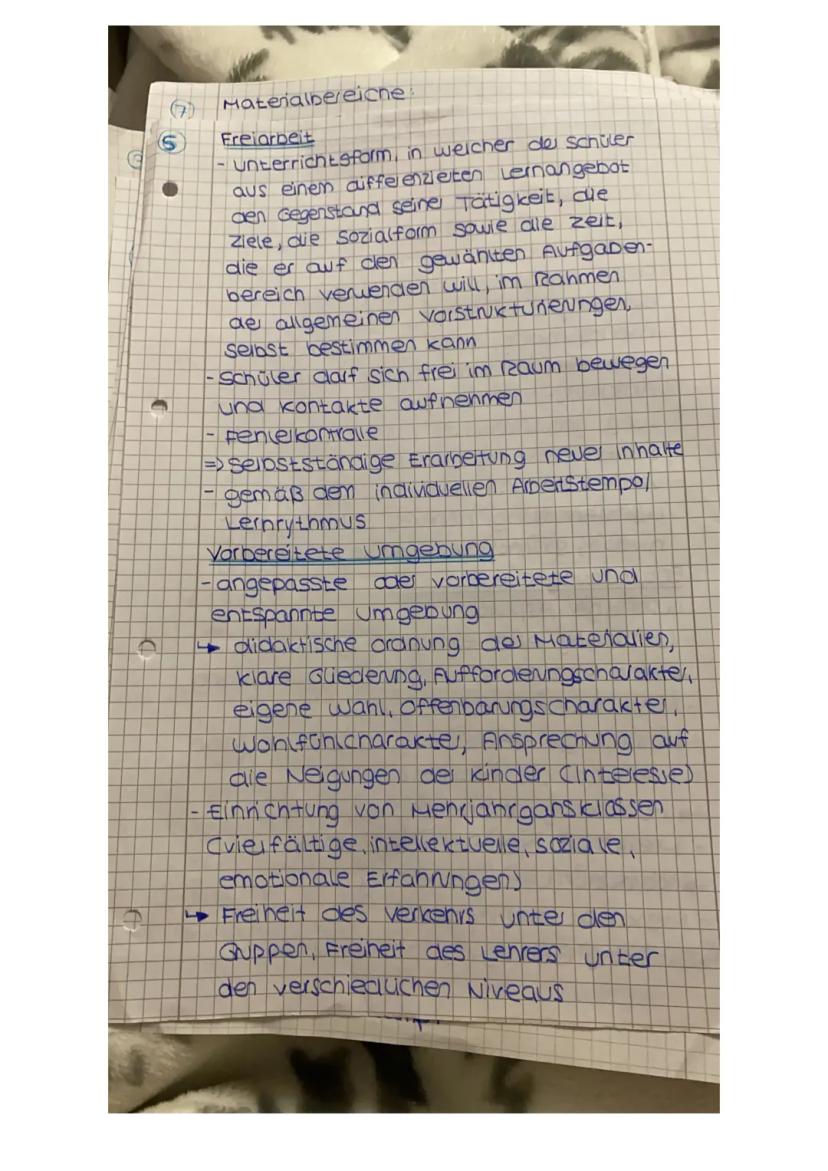 7 Materialbereiche:
5 Freiarbeit
- Unterrichtsform, in welcher der Schüler
aus einem differenzierten Lernangebot
den Gegenstand seiner Tätigkeit, die
Ziele, die Sozialform sowie die Zeit,
die er auf den gewählten Aufgaben-
bereich verwenden will, im Rahmen
der allgemeinen Vorstrukturierungen,
selbst bestimmen kann
- Schüler darf sich frei im Raum bewegen
und Kontakte aufnehmen
- Fehlerkontrolle
⇒ selbstständige Erarbeitung neuer Inhalte
- gemäß dem individuellen Arbeitstempo/
Lernrythmus
Vorbereitete Umgebung
- angepasste oder vorbereitete und
entspannte Umgebung
↳ didaktische Ordnung der Materialien,
klare Gliederung, Aufforderungscharakter,
eigene Wahl, Offenbarungscharakter,
Wohlfühlcharakter, Ansprechung auf
die Neigungen der Kinder (Interesse)
- Einrichtung von Mehrjahrgansklassen
(vielfältige, intellektuelle, soziale,
emotionale Erfahrungen)
↳ Freiheit des Verkehrs unter den
Gruppen, Freiheit des Lehrers unter
den verschiedlichen Niveaus